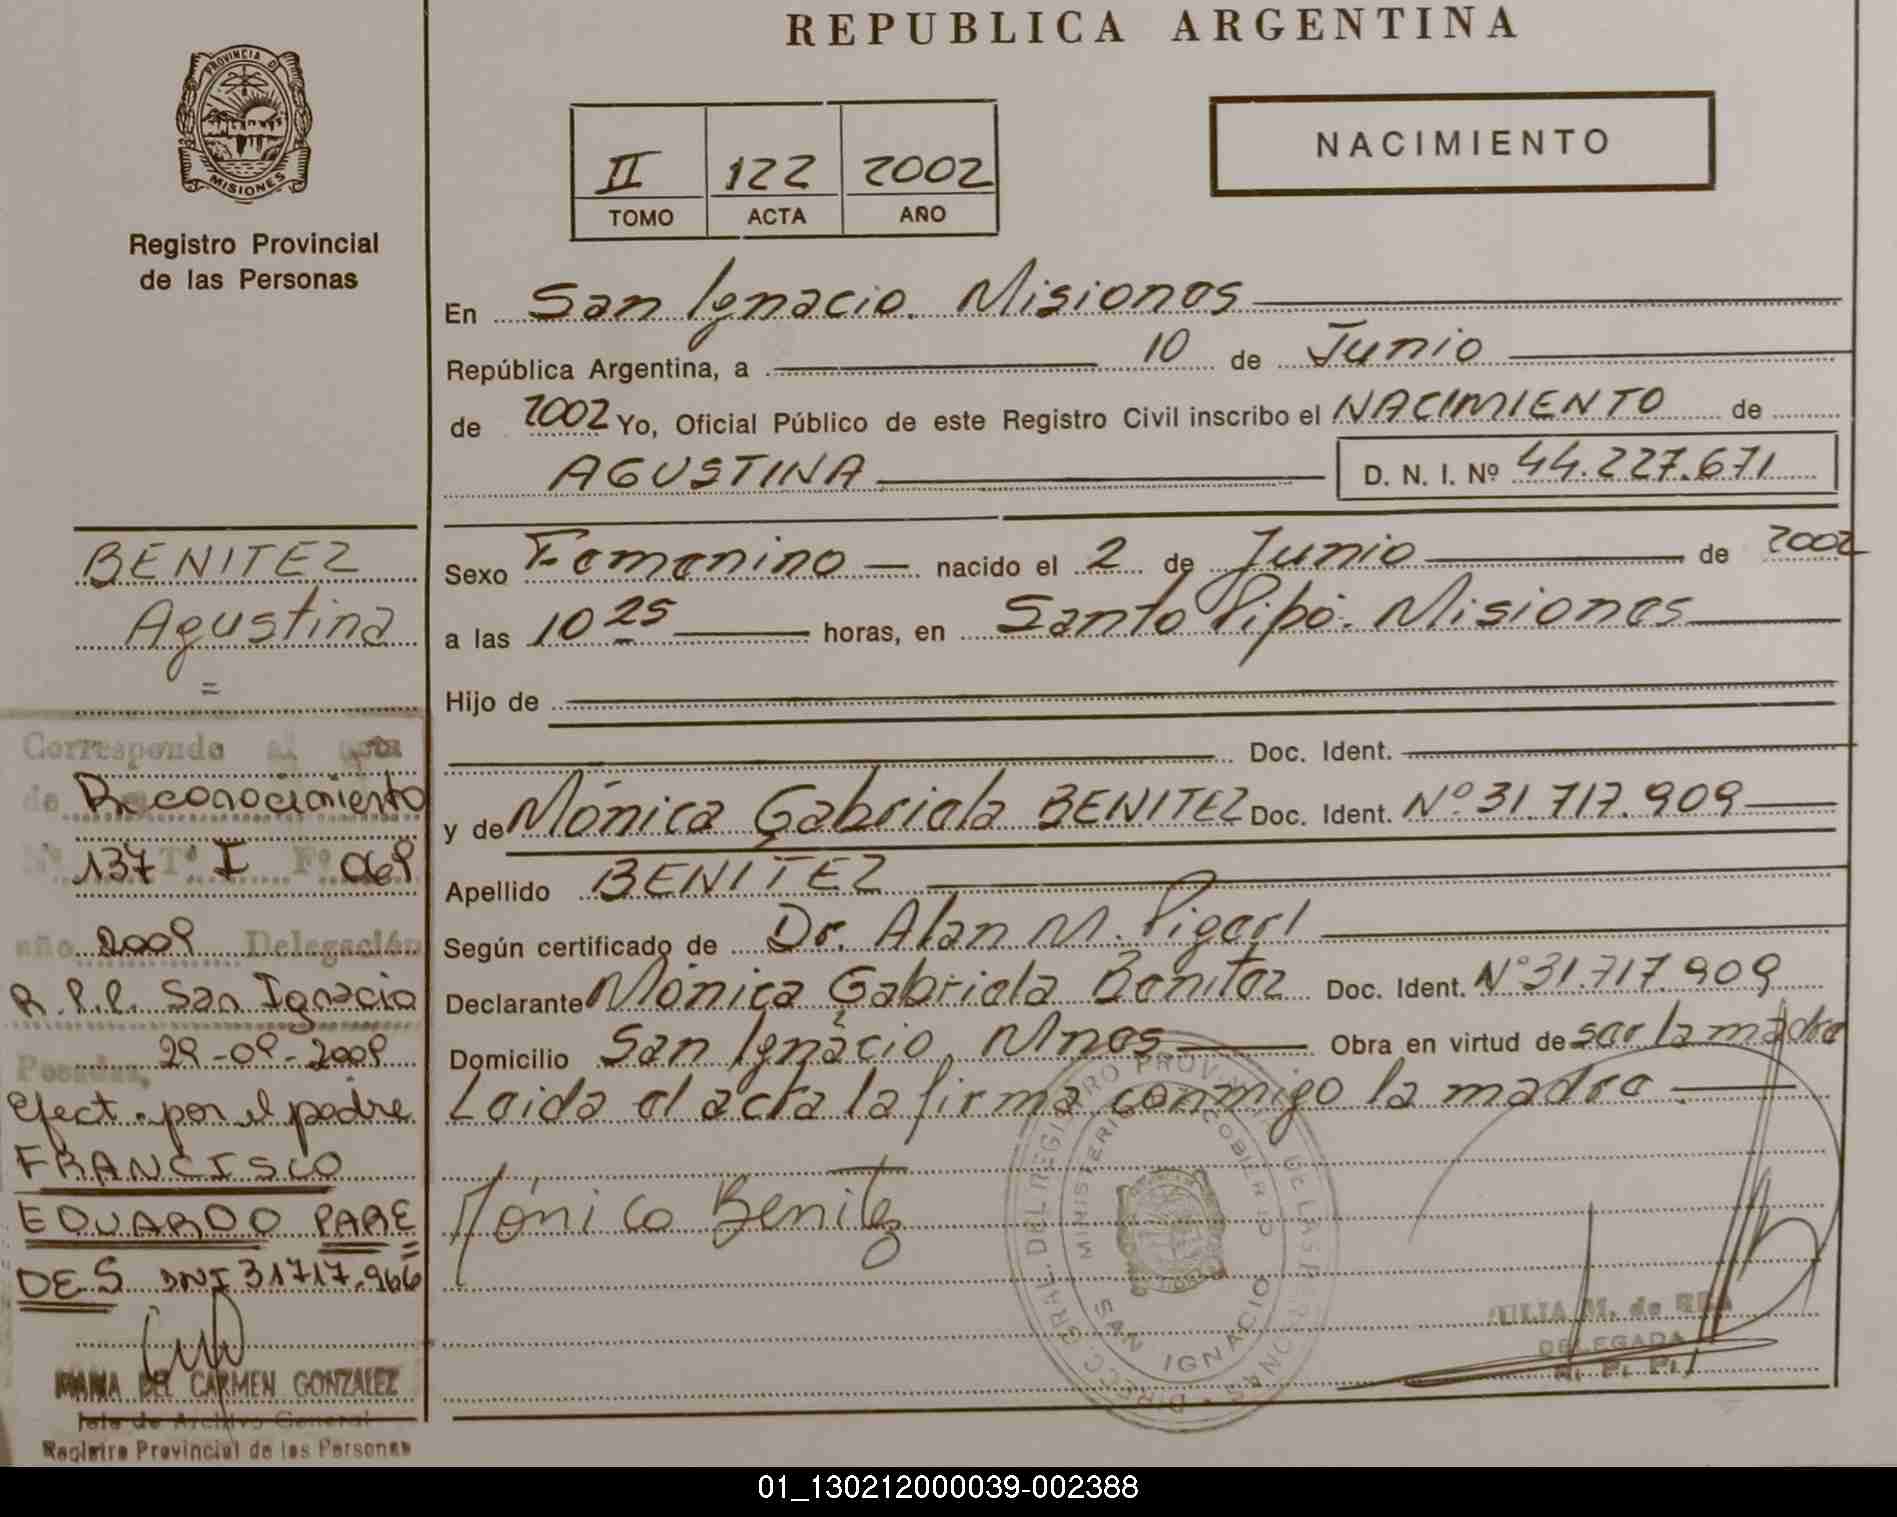 REPUBLICA ARGENTINA
PROVINCIA DE
MISIONES
Registro Provincial
de las Personas
II 122 2002
TOMO ACTA AÑO
NACIMIENTO
En San Ignacio. Misiones
República Argentina, a 10 de Junio
de 2002 Yo, Oficial Público de este Registro Civil inscribo el NACIMIENTO de
AGUSTINA D. N. I. Nº 44.227.671
Sexo Femenino nacido el 2 de Junio de 2002
a las 10 25 horas, en Santo Pipó. Misiones
Hijo de
Doc. Ident.
y de Mónica Gabriela BENITEZ Doc. Ident. Nº 31.717.909
Apellido BENITEZ
Según certificado de Dr. Alan M.
Declarante Mónica Gabriela Benítez Doc. Ident. Nº 31.717.909
Domicilio San Ignacio, Mnes Obra en virtud de ser la madre
Leida el acta la firma conmigo la madre.
Mónica Benitez
BENITEZ
Agustina
=
Corresponde al acta
de Reconocimiento
Nº 137 Tº I Fº 069
año 2009 Delegación
R.P.P. San Ignacio
Posadas, 29-09-2009
efect. por el padre
FRANCISCO
EDUARDO PARE
DES DNI 31717.966
MARIA DEL CARMEN GONZALEZ
Jefe de Archivo General
Registro Provincial de las Personas
DIRECC. GRAL. DEL REGISTRO PROVINCIAL DE LAS PERSONAS
MINISTERIO
SAN IGNACIO
JULIA M. de
DELEGADA
R. P. P.
01_130212000039-002388